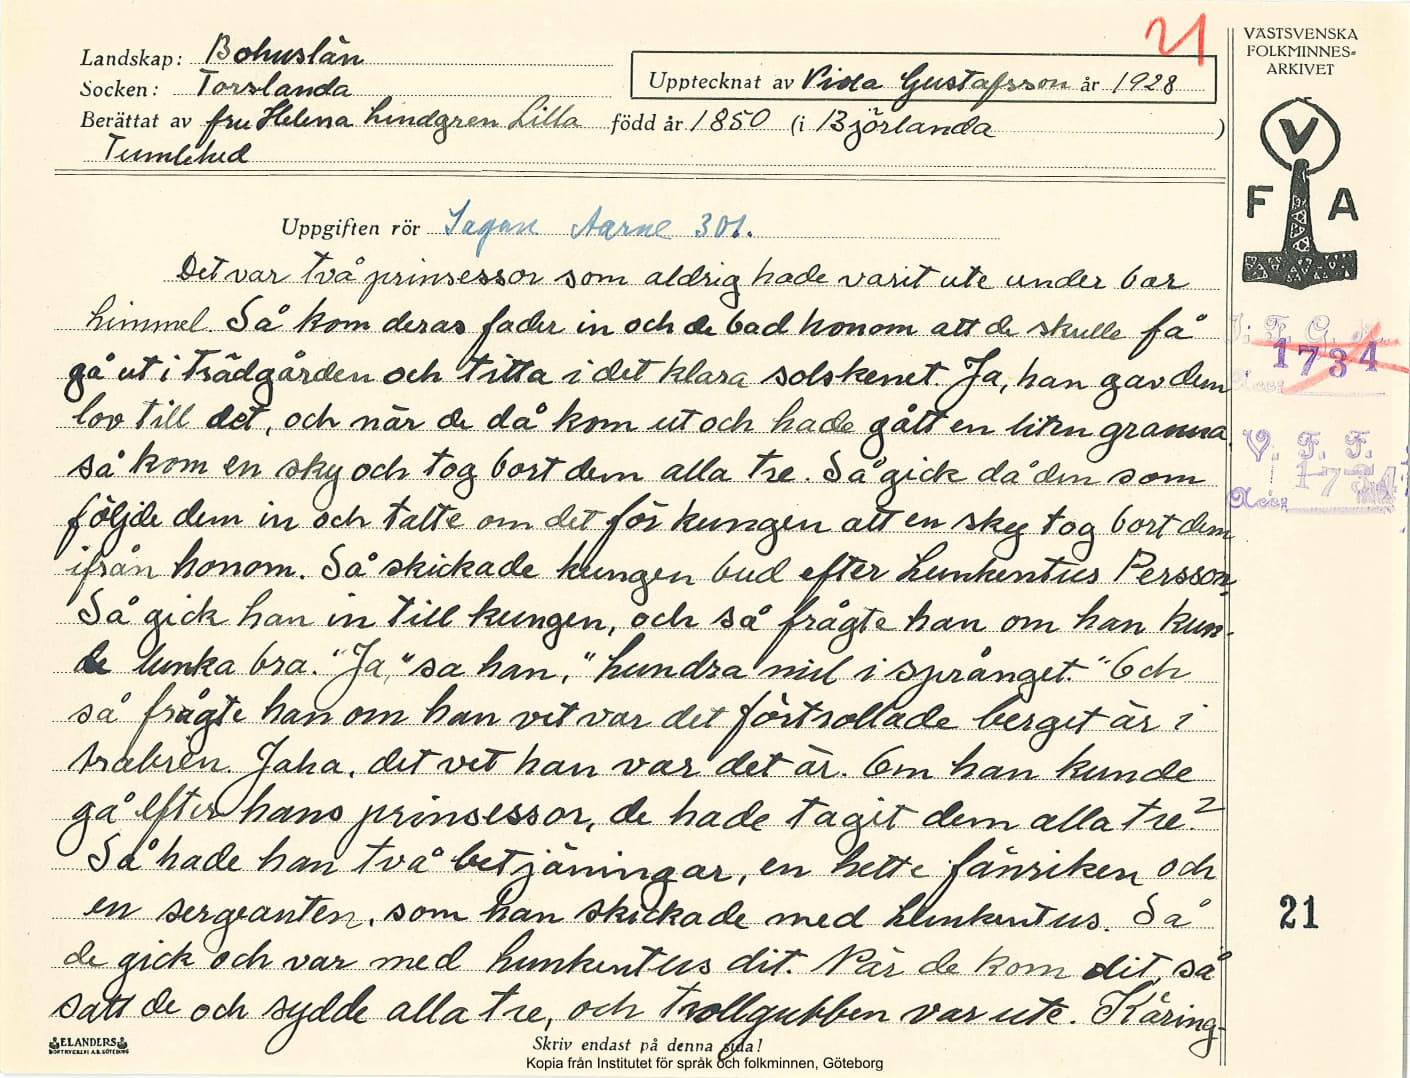 21
VÄSTSVENSKA
FOLKMINNES=
ARKIVET
Landskap: Bohuslän
Socken: Torslanda
Upptecknat av Viola Gustafsson år 1928
Berättat av fru Helena Lindgren Lilla född år 1850 (i Björlanda)
Tumlehed
V
F A
Uppgiften rör Sagan Aarne 301.
Det var två prinsessor som aldrig hade varit ute under bar
himmel. Så kom deras fader in och de bad honom att de skulle få
gå ut i trädgården och titta i det klara solskenet. Ja, han gav dem
lov till det, och när de då kom ut och hade gått en liten granna
så kom en sky och tog bort dem alla tre. Så gick då den som
följde dem in och talte om det för kungen att en sky tog bort dem
ifrån honom. Så skickade kungen bud efter Lunkentus Persson.
Så gick han in till kungen, och så frågte han om han kun-
de lunka bra. "Ja," sa han, "hundra mil i språnget." Och
så frågte han om han vet var det förtrollade berget är i
Jaha, det vet han var det är. Om han kunde
gå efter hans prinsessor, de hade tagit dem alla tre?
Så hade han två betjäningar, en hette fänriken och
en sergeanten, som han skickade med Lunkentus. Så
de gick och var med Lunkentus dit. När de kom dit, så
satt de och sydde alla tre, och trollgubben var ute. Käring-
I. F. G. H.
1734
Acc:
V. F. F.
1734
Acc:
21
ELANDERS
BOKTRYCKERI A.B. GÖTEBORG
Skriv endast på denna sida!
Kopia från Institutet för språk och folkminnen, Göteborg